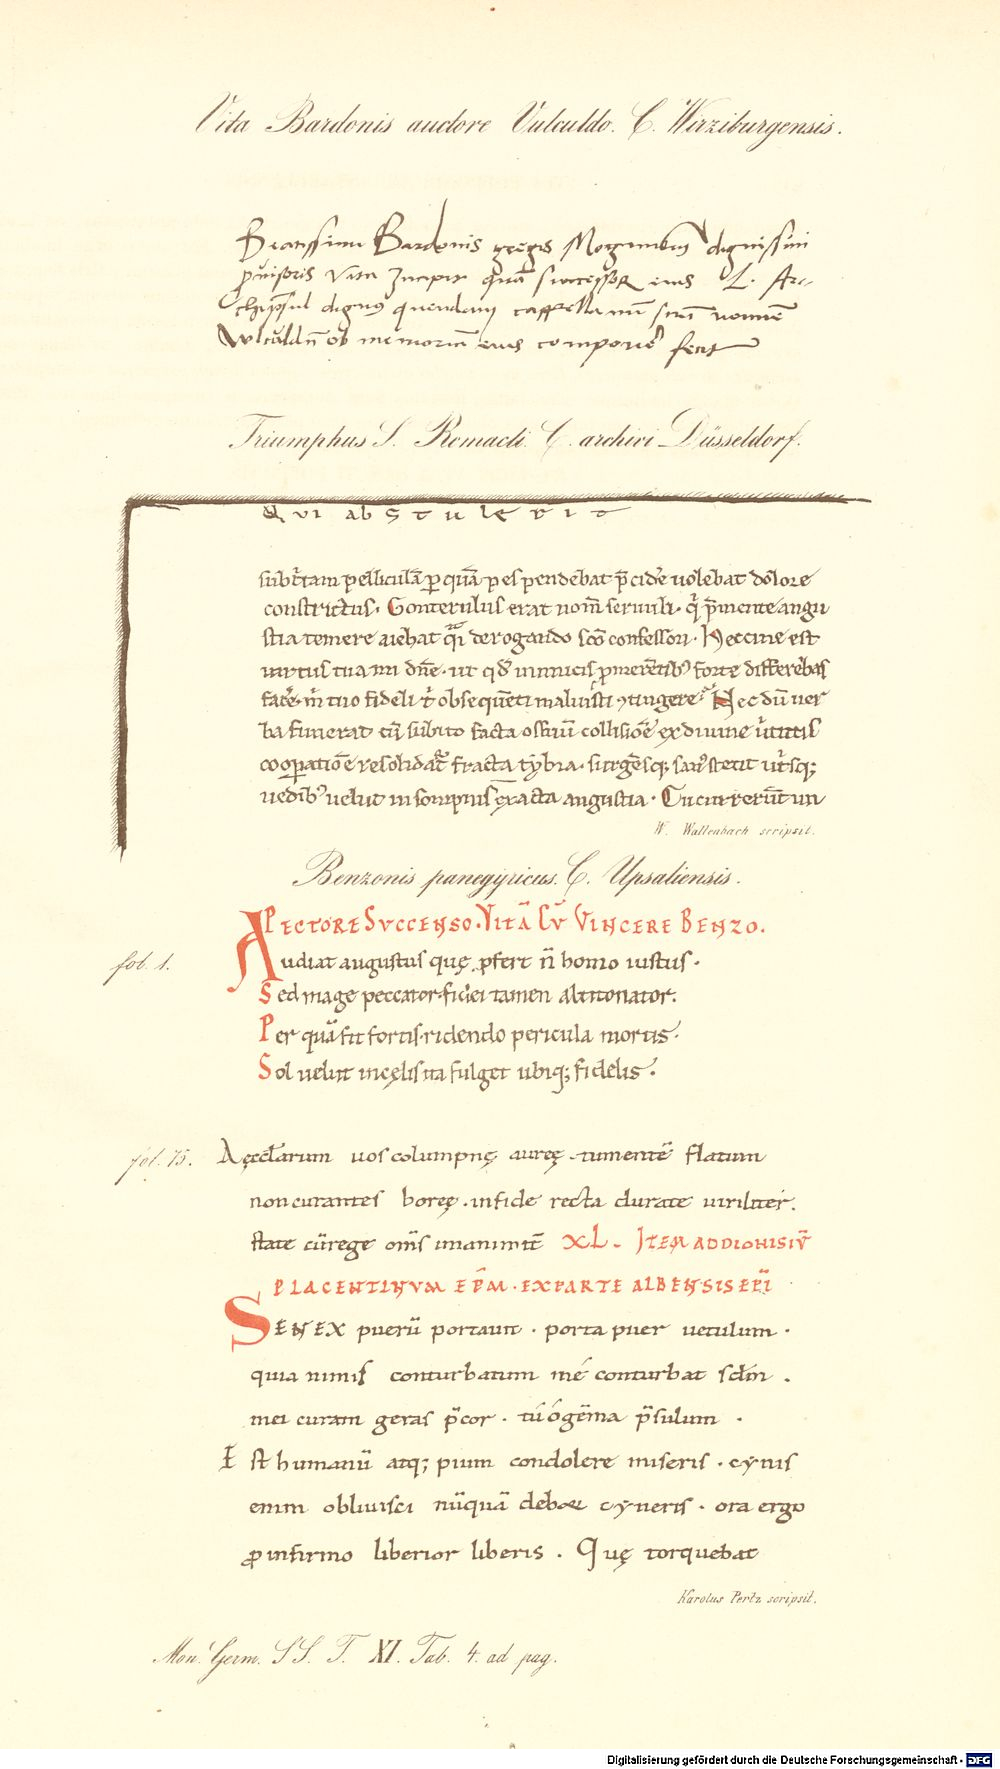 Vita Bardonis auctore Vulculdo. C. Wirziburgensis.
Beatissimi Bardonis gregis Moguntini dignissimi
p̄visoris Vita Incipit quā successor eius L. Ar-
chip̄sul dignus quendam cappellanum suū nomine
Wlculdū ob memoriā eius componere fecit
Triumphus S. Remacli. C. archivi Düsseldorf.
Qui abstulerit
subt̄ tam pelliculā ꝑ quā pes pendebat p̄cide uolebat dolore
constrictus. Gonterulus erat nom̄ seruuli. q̄ p̄minente angu
stia temere aiebat q̄si derogando sc̄o confessori. Heccine est
uirtus tua mi dn̄e. ut qd̄ inimicis ꝓmerētibꝰ forte differebas
facē. m̄ tuo fideli & obsequēti maluisti ꝯtingere? Nec dū uer
ba finierat cū subito facta ossiū collisiōe ex diuine ūtutis
coopatiōe resolidat̄ fracta tybia. surgēsq; sanꝰ stetit ut̄sq;
uedibꝰ uelut in sompnis exacta angustia. Cucurrerūt un
W. Wattenbach scripsit.
Benzonis panegyricus. C. Upsaliensis.
PECTORE SVCCENSO. VITĀ CV̄ VINCERE BENZO.
fol. 1.
Audiat augustus quę ꝓfert n̄ homo iustus.
Sed mage peccator fidei tamen altitonator.
Per quā fit fortis. ridendo pericula mortis.
Sol uelut incęlis ita fulget ubiq; fidelis.
fol. 75. Aęccl̄arum uos columpnę aureę. tumentē flatum
non curantes boreę. infide recta durate uiriliter.
state cū rege om̄s unanimit̄ XL. ITEM AD DIONISIV̄
PLACENTINVM EP̄M. EXPARTE ALBENSIS EP̄I
SENEX puerū portauit. porta puer uetulum.
quia nimis conturbatum me conturbat scl̄m.
mei curam geras p̄cor. tu ó gēma p̄sulum.
Est humanū atq; pium condolere miseris. cynis
enim obliuisci nūquā debet cyneris. ora ergo
ꝓ infirmo liberior liberis. Quę torquebat
Karolus Pertz scripsit.
Mon. Germ. SS. T. XI. Tab. 4. ad pag.
Digitalisierung gefördert durch die Deutsche Forschungsgemeinschaft - DFG